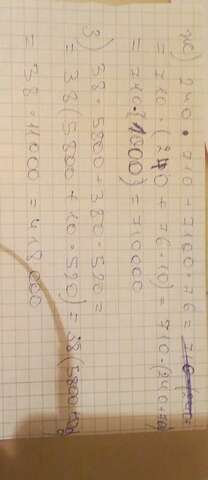 ж) 240 · 710 + 7100 · 76 =
= 710 · (240 + 76 · 10) = 710 · (240 +
= 710 · (1000) = 710000
з) 38 · 5800 + 380 · 520 =
= 38 (5800 + 10 · 520) = 38 (5800 +
= 38 · 11000 = 418000